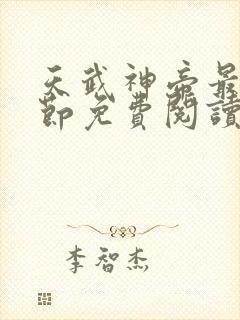 天武神帝最
節免費閱讀
李智杰